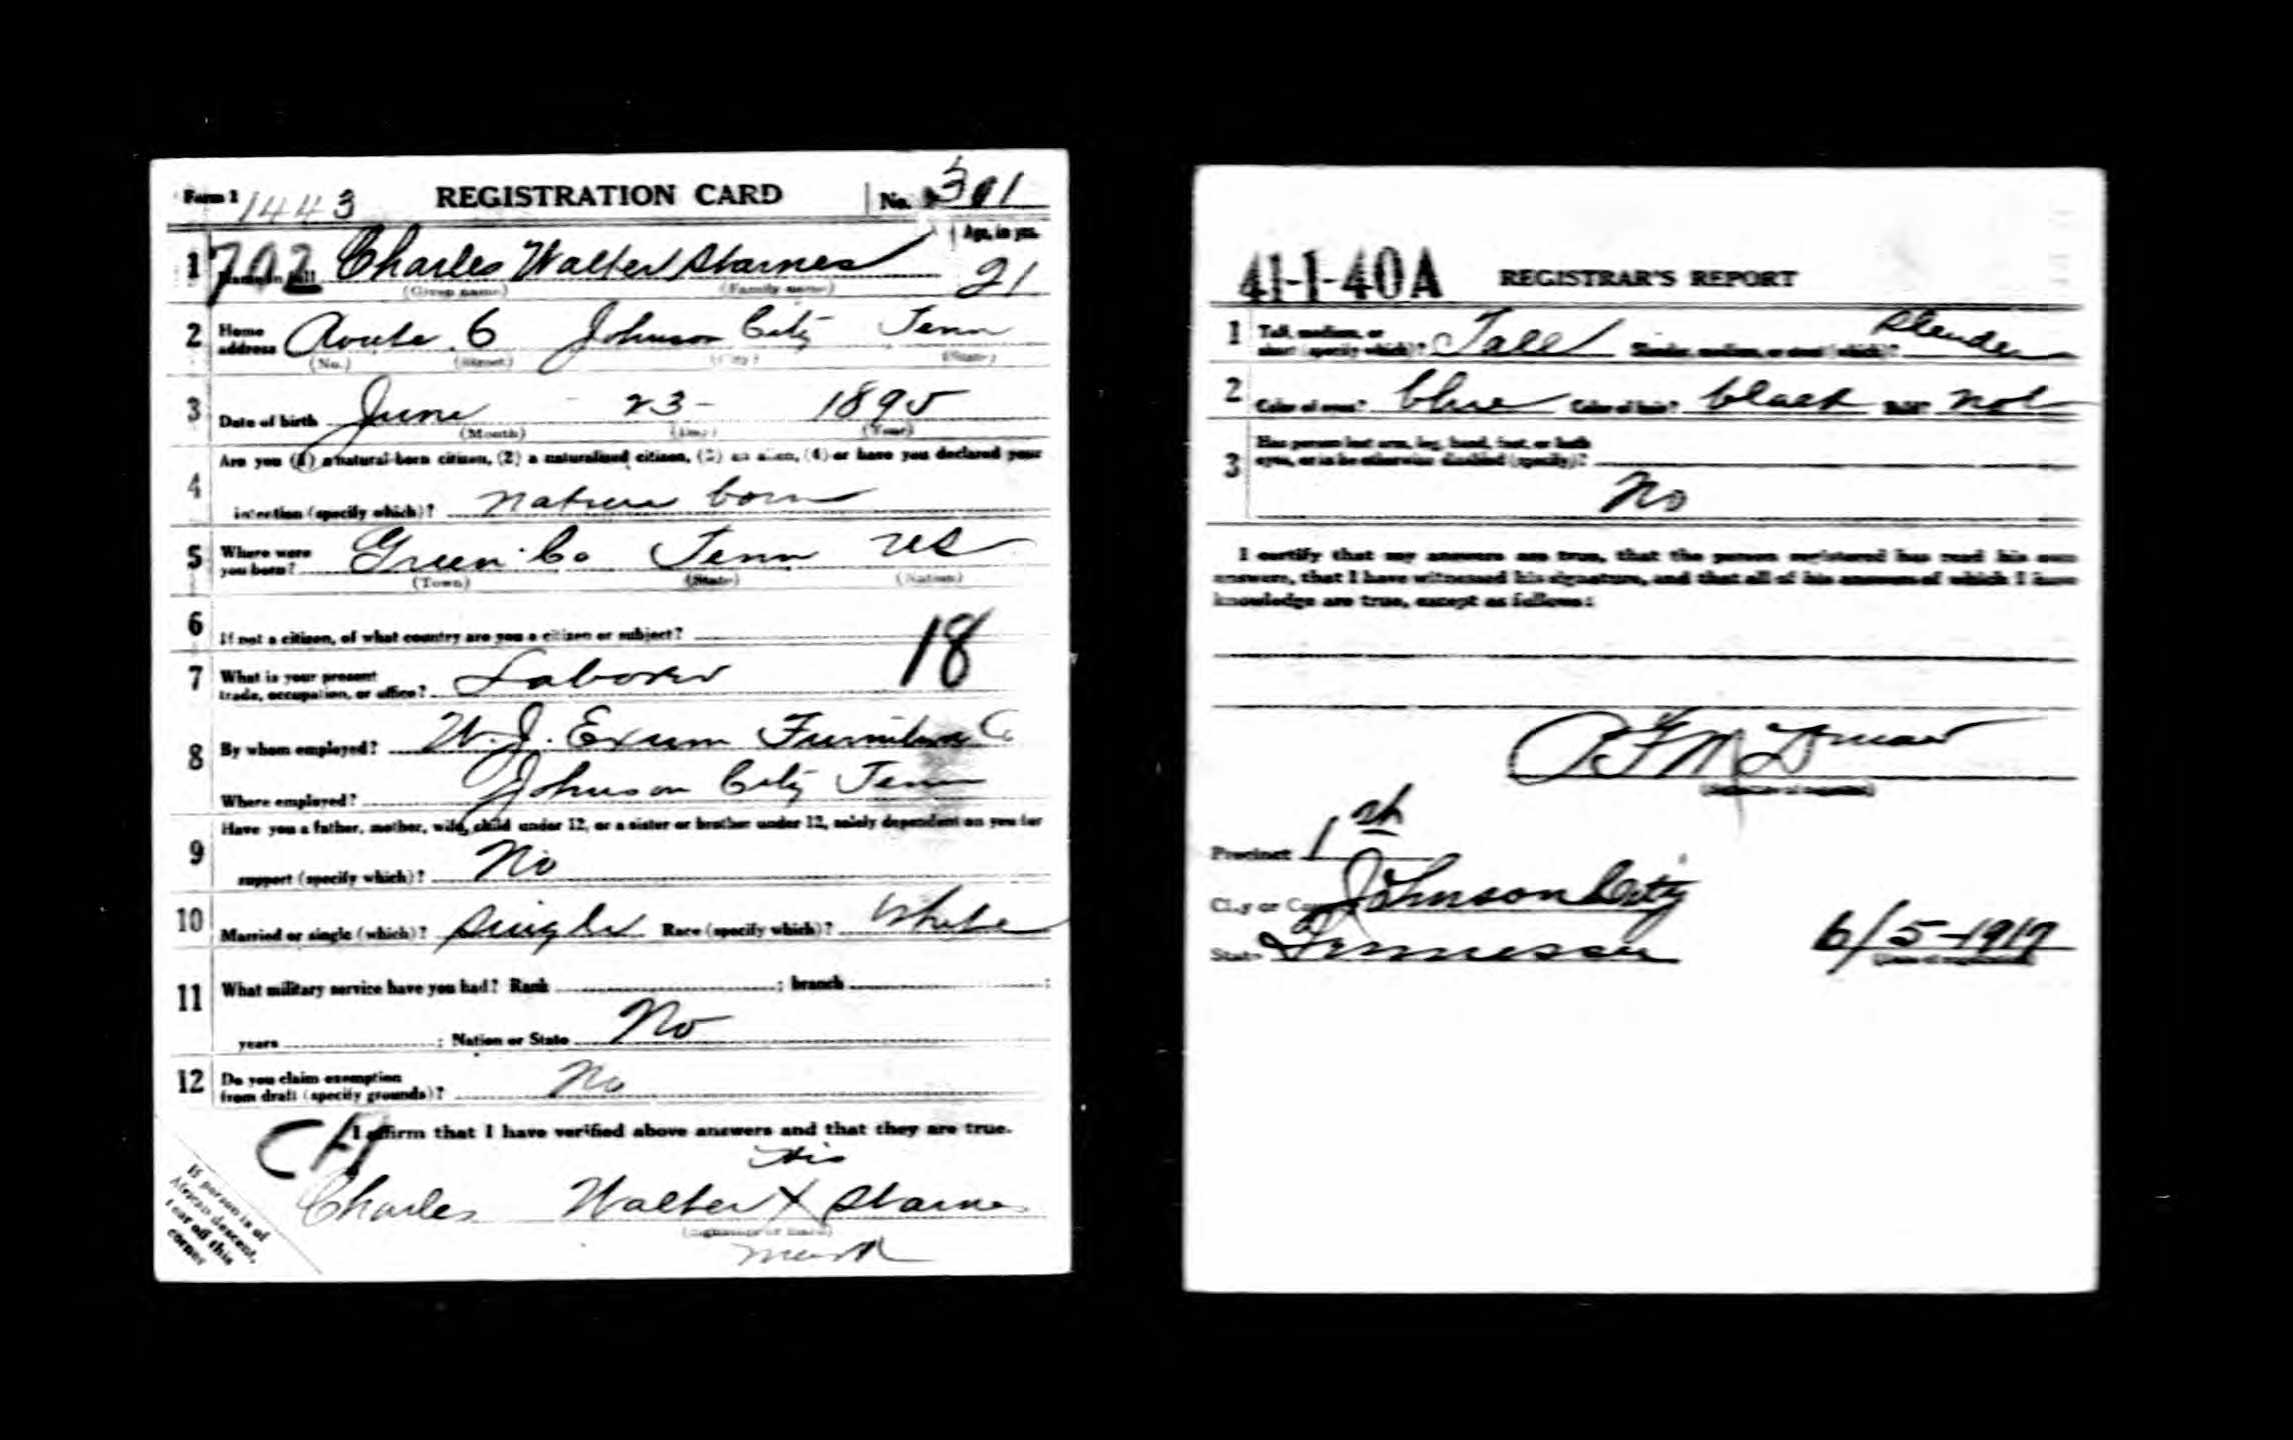 Form 1 1443 REGISTRATION CARD No. 301
Age, in yrs.
1 702 Name in full Charles Walter Starnes 21
(Given name) (Family name)
2 Home address Route 6 Johnson City Tenn
(No.) (Street) (City) (State)
3 Date of birth June - 23 - 1895
(Month) (Day) (Year)
Are you (1) a natural-born citizen, (2) a naturalized citizen, (3) an alien, (4) or have you declared your
4 intention (specify which)? nature born
5 Where were you born? Green Co Tenn US
(Town) (State) (Nation)
6 If not a citizen, of what country are you a citizen or subject?
18
7 What is your present trade, occupation, or office? Laborer
8 By whom employed? W. J. Exum Furniture Co
Where employed? Johnson City Tenn
Have you a father, mother, wife, child under 12, or a sister or brother under 12, solely dependent on you for
9 support (specify which)? No
10 Married or single (which)? single Race (specify which)? White
11 What military service have you had? Rank ; branch ;
years ; Nation or State No
12 Do you claim exemption from draft (specify grounds)? No
I affirm that I have verified above answers and that they are true.
his
Charles Walter X Starnes
(Signature or mark)
mark
If person is of
African descent,
tear off this
corner
41-1-40A REGISTRAR'S REPORT
1 Tall, medium, or short (specify which)? Tall Slender, medium, or stout (which)? Slender
2 Color of eyes? blue Color of hair? black Bald? not
Has person lost arm, leg, hand, foot, or both
3 eyes, or is he otherwise disabled (specify)?
No
I certify that my answers are true, that the person registered has read his own
answers, that I have witnessed his signature, and that all of his answers of which I have
knowledge are true, except as follows:
(Signature of registrar)
Precinct 1st
City or County Johnson City
State Tennessee 6/5-1917
(Date of registration)